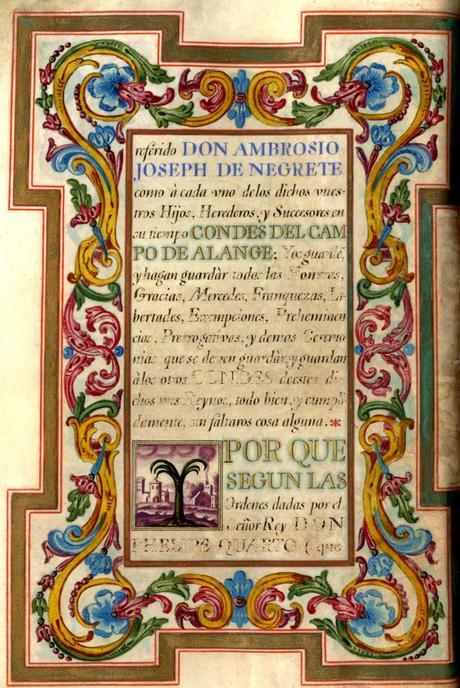 referido DON AMBROSIO
JOSEPH DE NEGRETE
como à cada vno delos dichos vues-
tros Hijos, Herederos, y Successores en
su tiempo CONDES DEL CAM
PO DE ALANGE; Vos guardè,
y hagan guardàr todas las Honrras,
Gracias, Mercedes, Franquezas, Li-
bertades, Exempciones, Preheminen
cias, Prerrogativas, y demas Ceremo-
nias que se deven guardàr, y guardan
à los otros CONDES de estos di-
chos mis Reynos, todo bien, y cumpli
damente, sin faltaros cosa alguna.
POR QUE
SEGUN LAS
Ordenes dadas por el
Señor Rey DON
PHELIPE QUARTO (que